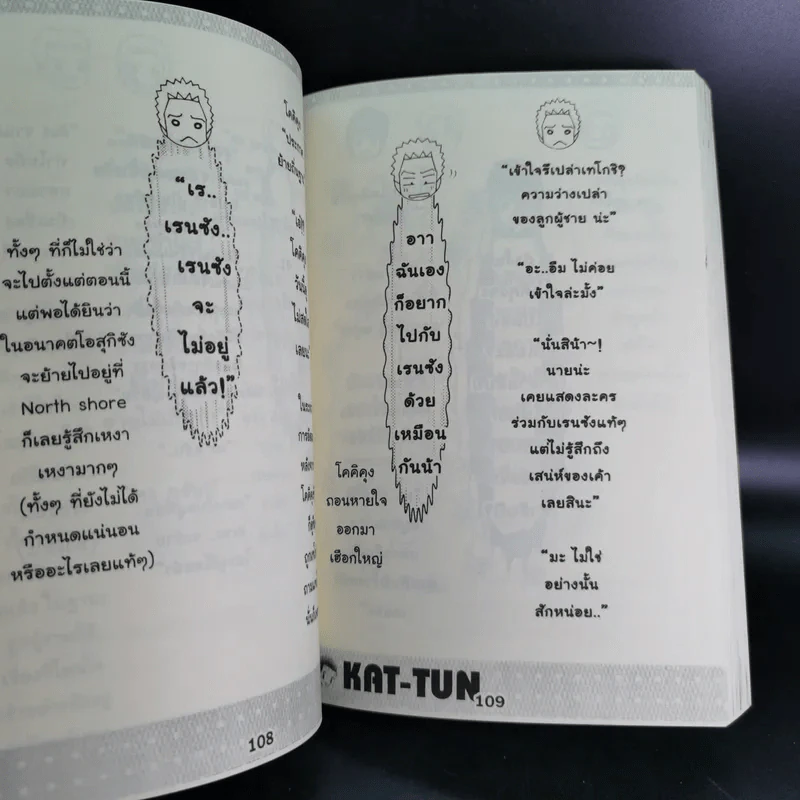 ทั้งๆ ที่ก็ไม่ใช่ว่า
จะไปตั้งแต่ตอนนี้
แต่พอได้ยินว่า
ในอนาคตโอสุกิซัง
จะย้ายไปอยู่ที่
North shore
ก็เลยรู้สึกเหงา
เหงามากๆ
(ทั้งๆ ที่ยังไม่ได้
กำหนดแน่นอน
หรืออะไรเลยแท้ๆ)
“เร..
เรนซัง..
เรนซัง
จะ
ไม่อยู่
แล้ว!”
โคคิคุง
108
อาา
ฉันเอง
ก็อยาก
ไปกับ
เรนซัง
ด้วย
เหมือน
กันน้า
โคคิคุง
ถอนหายใจ
ออกมา
เฮือกใหญ่
“เข้าใจรึเปล่าเทโกริ?
ความว่างเปล่า
ของลูกผู้ชาย น่ะ”
“อะ..อืม ไม่ค่อย
เข้าใจล่ะมั้ง”
“นั่นสิน้า~!
นายน่ะ
เคยแสดงละคร
ร่วมกับเรนซังแท้ๆ
แต่ไม่รู้สึกถึง
เสน่ห์ของเค้า
เลยสินะ”
“มะ ไม่ใช่
อย่างนั้น
สักหน่อย..”
KAT-TUN
109